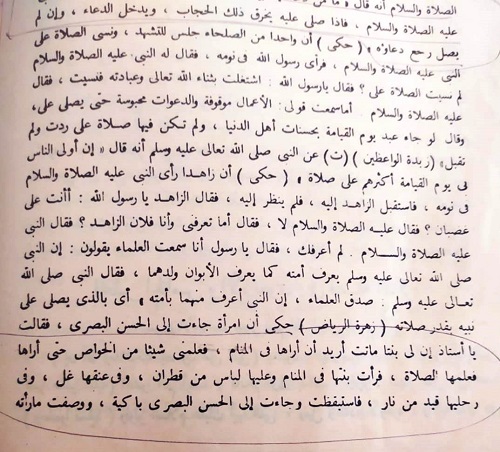 الصلاة والسلام أنه قال «ما من
عليه الصلاة والسلام ، فاذا صلى عليه يخرق ذلك الحجاب ، ويدخل الدعاء ، وإن لم
يصل رجع دعاؤه» (حكى) أن واحدا من الصلحاء جلس للتشهد ، ونسى الصلاة على
النبى عليه الصلاة والسلام ، فرأى رسول الله فى نومه ، فقال له النبى عليه الصلاة والسلام
لم نسيت الصلاة على ؟ فقال يارسول الله : اشتغلت بثناء الله تعالى وعبادته فنسيت ، فقال
عليه الصلاة والسلام أماسمعت قولى : الأعمال موقوفة والدعوات محبوسة حتى يصلى على،
وقال لو جاء عبد يوم القيامة بحسنات أهل الدنيا ، ولم تكن فيها صلاة على ردت ولم
تقبل» (زبدة الواعظين) (ت) عن النبى صلى الله تعالى عليه وسلم أنه قال «إن أولى الناس
فى يوم القيامة أكثرهم على صلاة » (حكى) أن زاهدا رأى النبى عليه الصلاة والسلام
فى نومه ، فاستقبل الزاهد إليه ، فلم ينظر إليه ، فقال الزاهد يا رسول الله : أأنت على
غصبان ؟ فقال عليه الصلاة والسلام لا ، فقال أما تعرفنى وأنا فلان الزاهد ؟ فقال النبى
عليه الصلاة والسلام . لم أعرفك ، فقال يا رسول أنا سمعت العلماء يقولون : إن النبى
صلى الله تعالى عليه وسلم يعرف أمته كما يعرف الأبوان ولدهما ، فقال النبى صلى الله
تعالى عليه وسلم : صدق العلماء ، إن النبى أعرف منهما بأمته » أى بالذى يصلى على
نبيه بقدر صلاته (زهرة الرياض) حكى أن امرأة جاءت إلى الحسن البصرى ، فقالت
يا أستاذ إن لى بنتا ماتت أريد أن أراها فى المنام ، فعلمنى شيئا من الخواص حتى أراها
فعلمها الصلاة ، فرأت بنتها فى المنام وعليها لباس من قطران ، وفى عنقها غل ، وفى
رجليها قيد من نار ، فاستيقظت وجاءت إلى الحسن البصرى باكية ، ووصفت مارأته